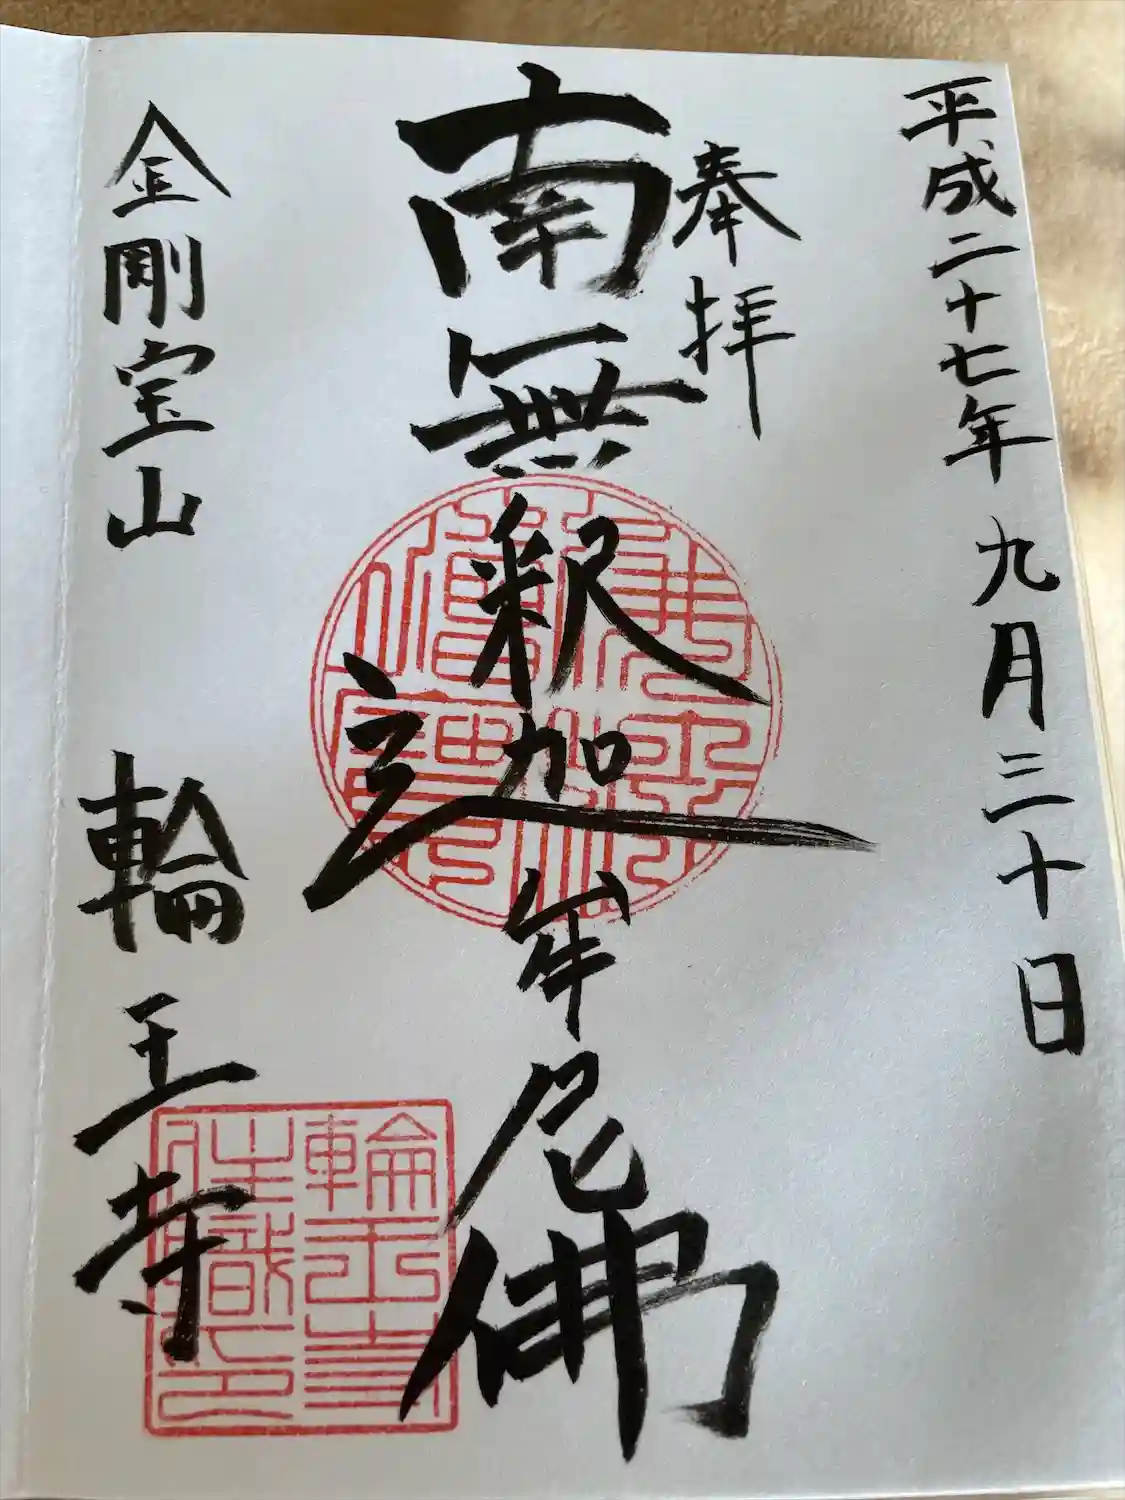 平成二十七年 九月三十日
奉拝
南無釈迦牟尼佛
金剛宝山 輪王寺
輪王寺
住職之印